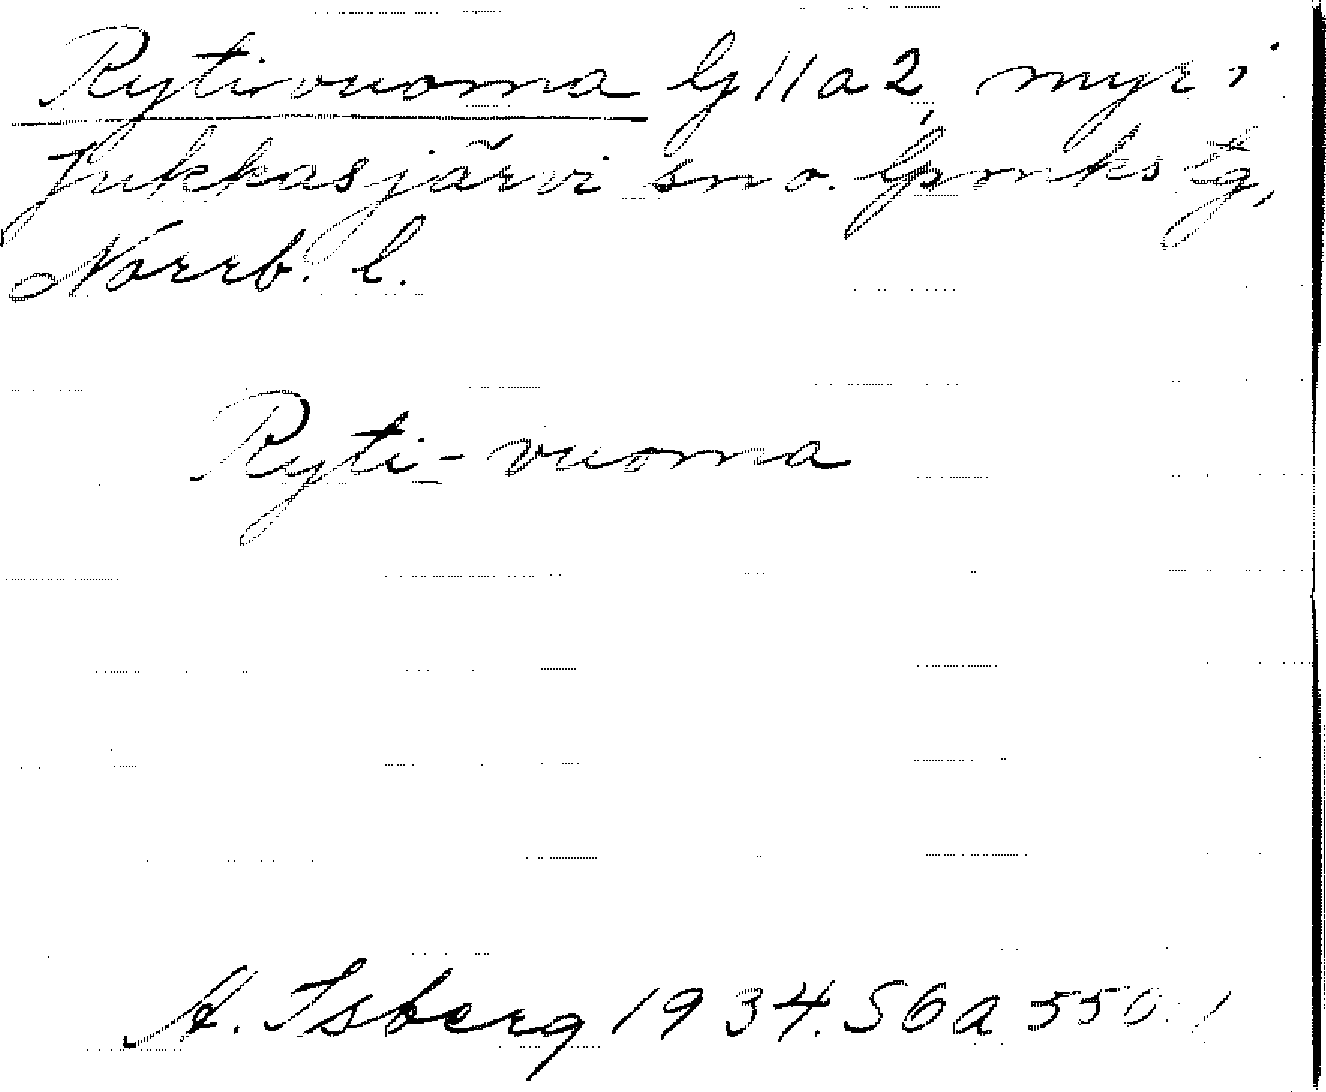 Rytivuoma lj 11 a 2, myr i
Jukkasjärvi sn o. lpmks tg,
Norrb. l.
Ryti-vuoma
H. Isberg 1934. S6a 550.1